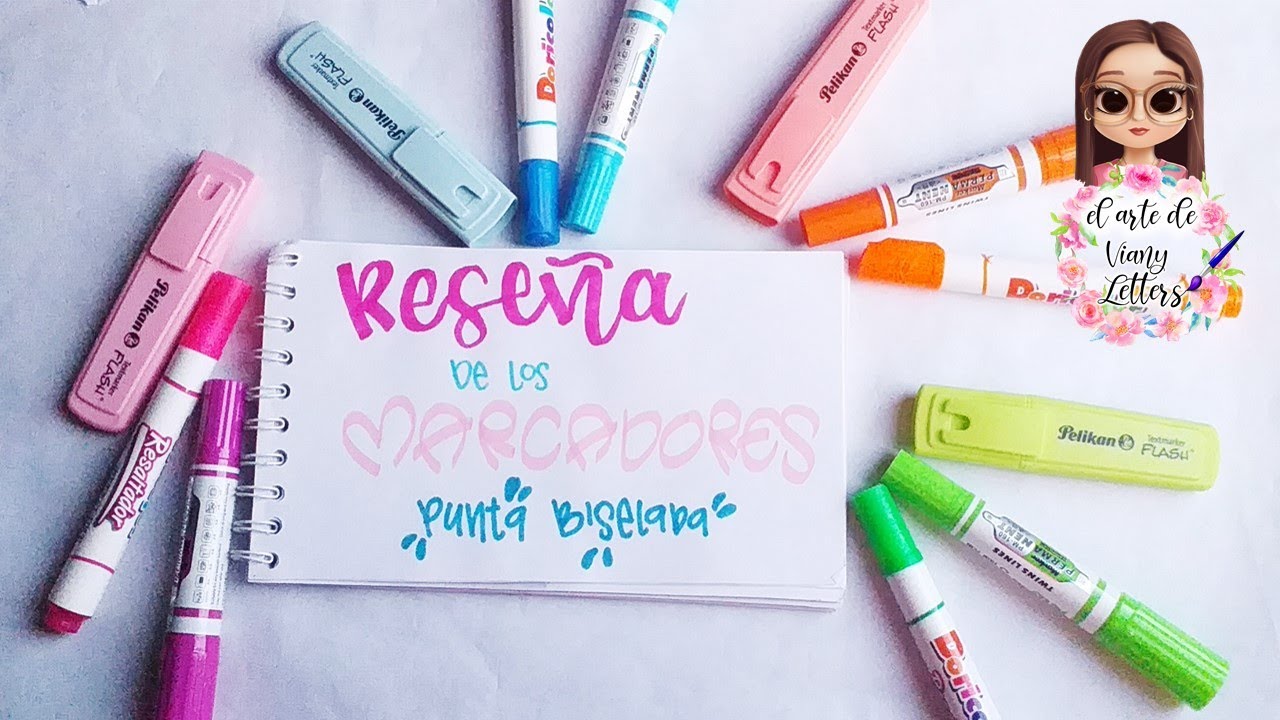 Reseña
de los
MARCADORES
Punta Biselada
el arte de
Viany
Letters
Pelikan Textmarker FLASH
Pelikan Textmarker FLASH
Pelikan Textmarker FLASH
Pelikan Textmarker FLASH
Resaltador
PERMANENT
TWINS LINES
PM-160
PERMANENT
TWINS LINES